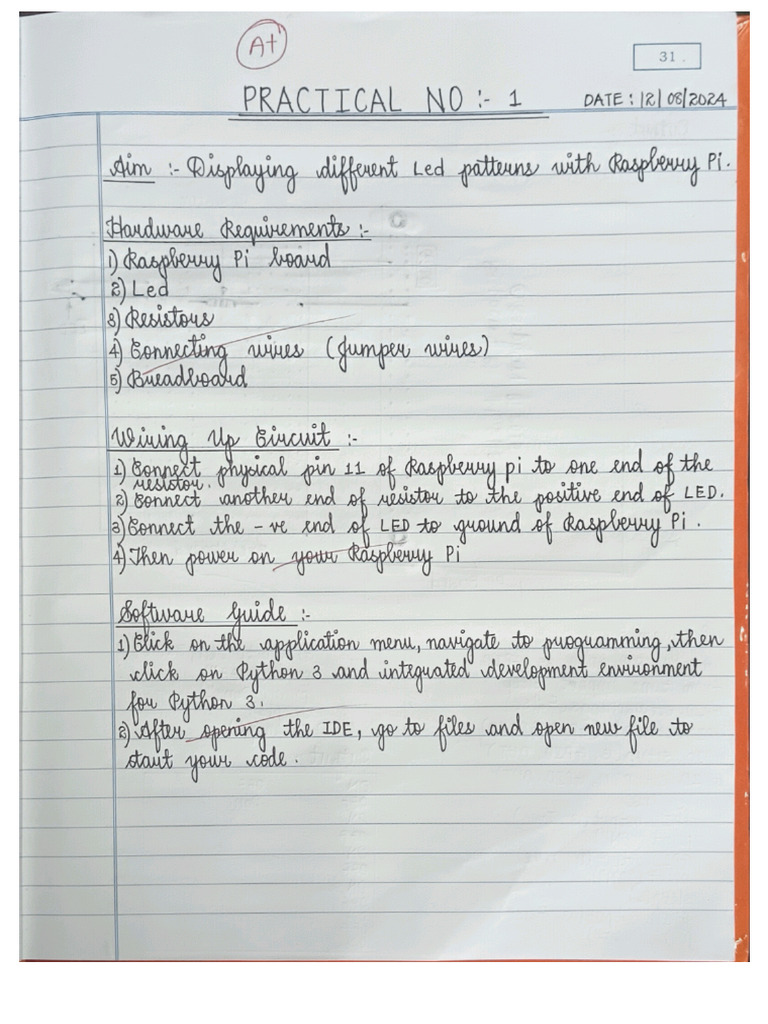 A+
31.
PRACTICAL NO :- 1
DATE : 12/08/2024
Aim :- Displaying different Led patterns with Raspberry Pi.
Hardware Requirements :-
1) Raspberry Pi board
2) Led
3) Resistors
4) Connecting wires (Jumper wires)
5) Breadboard
Wiring Up Circuit :-
1) Connect physical pin 11 of Raspberry pi to one end of the
resistor.
2) Connect another end of resistor to the positive end of LED.
3) Connect the -ve end of LED to ground of Raspberry Pi.
4) Then power on your Raspberry Pi
Software Guide :-
1) Click on the application menu, navigate to programming, then
click on Python 3 and integrated development environment
for Python 3.
2) After opening the IDE, go to files and open new file to
start your code.